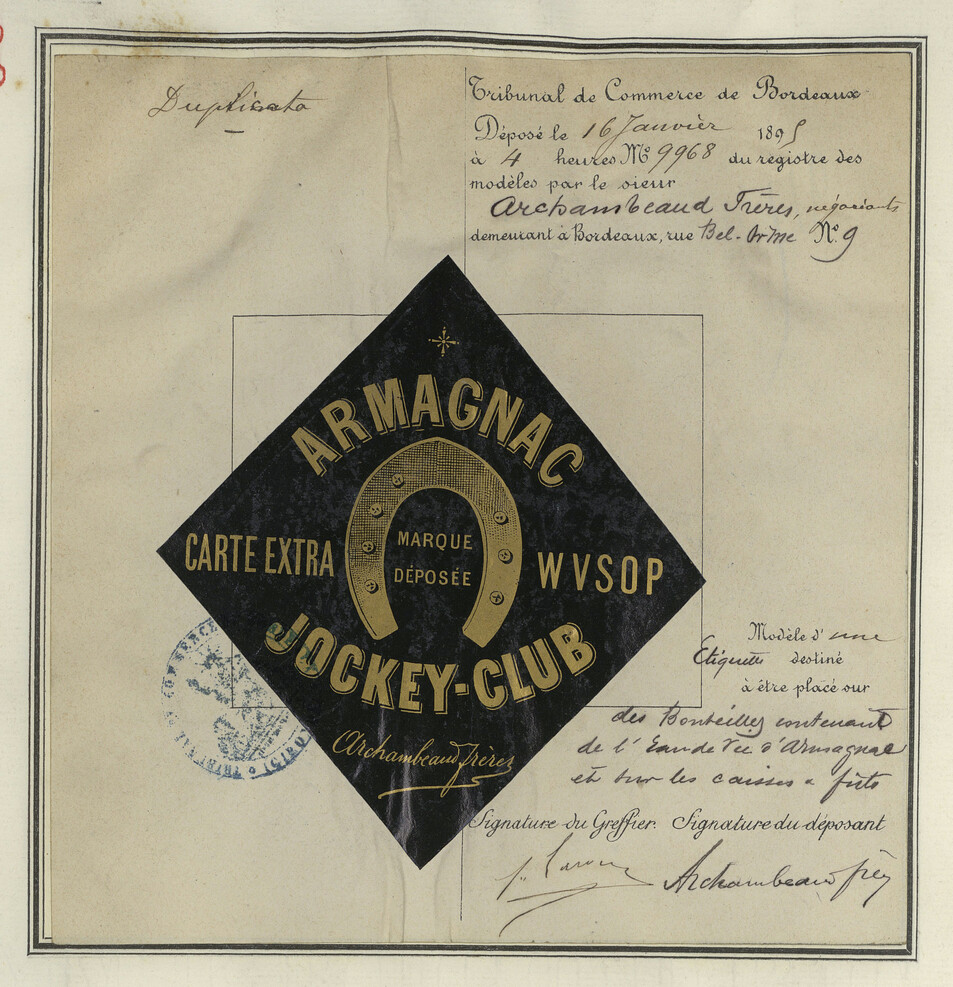 Duplicata
Tribunal de Commerce de Bordeaux
Déposé le 16 Janvier 1895
à 4 heures No 9968 du registre des
modèles par le sieur
Archambeaud Frères, négociants
demeurant à Bordeaux, rue Bel-Orme No. 9
ARMAGNAC
MARQUE
DÉPOSÉE
CARTE EXTRA
WVSOP
JOCKEY-CLUB
Archambeaud Frères
Modèle d'une
Etiquette destiné
à être placé sur
des Bouteilles contenant
de l'Eau de Vie d'Armagnac
et sur les caisses & fûts
Signature du Greffier. Signature du déposant
Archambeaud frères